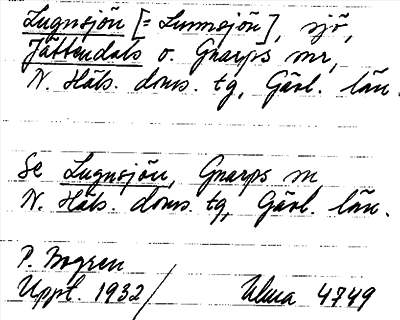 Lugnsjön [= Lumsjön], sjö,
Jättendals o. Gnarps snr,
N. Häls. doms. tg, Gävl. län.
Se Lugnsjön, Gnarps sn
N. Häls. doms. tg, Gävl. län.
P. Bogren
Uppt. 1932/ Ulma 4749